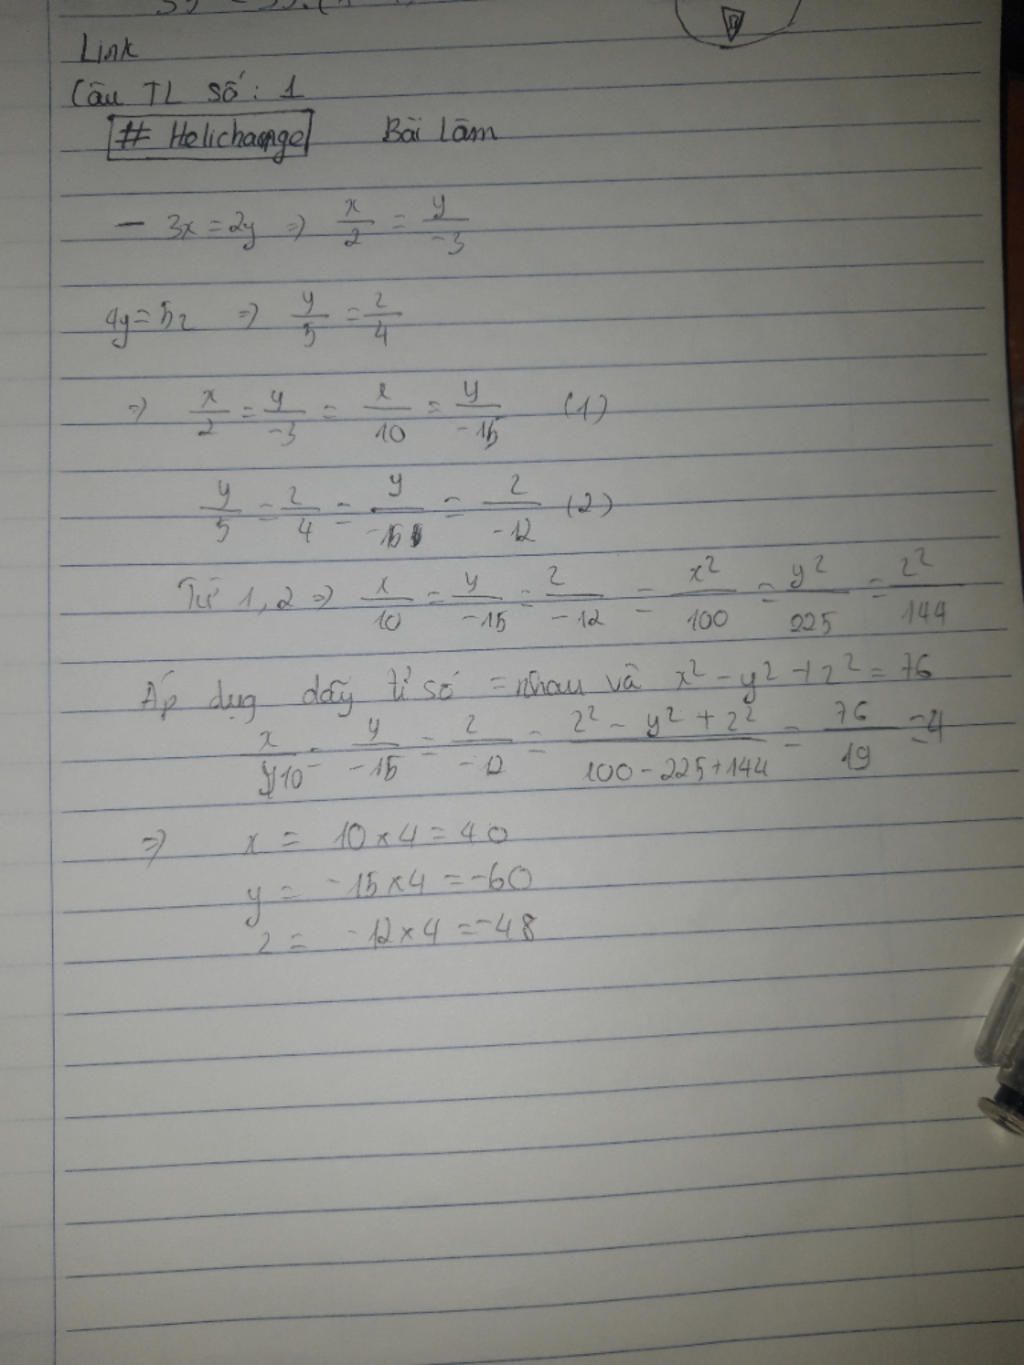 Link
Câu TL số: 1
# Helichange Bài làm
- 3x = 2y => x/2 = y/-3
4y = 5z => y/5 = z/4
=> x/2 = y/-3 = x/10 = y/-15 (1)
y/5 = z/4 = y/-15 = z/-12 (2)
Từ 1, 2 => x/10 = y/-15 = z/-12 = x²/100 = y²/225 = z²/144
Áp dụg dãy tỉ số = nhau và x² - y² + z² = 76
x/10 = y/-15 = z/-12 = z² - y² + z²/100 - 225 + 144 = 76/19 = 4
=> x = 10 × 4 = 40
y = -15 × 4 = -60
z = -12 × 4 = -48